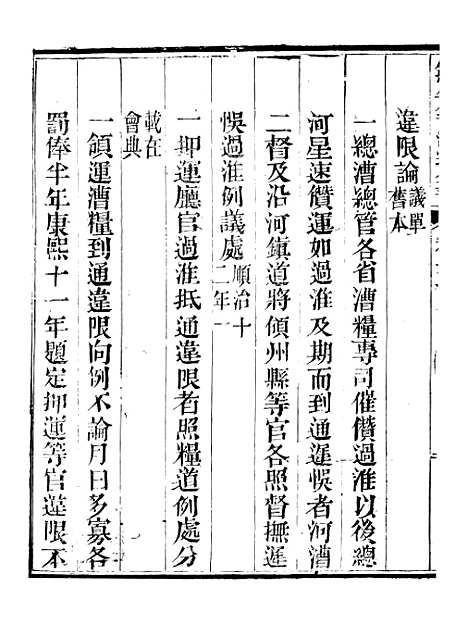 違限論議單舊本
一總漕總管各省漕糧專司催儹過淮以後總
河星速儹運如過淮及期而到通遲悞者河漕
二督及沿河鎮道將領州縣等官各照督撫遲
悞過淮例議處順治十二年一
一押運廳官過淮抵通違限者照糧道例處分
載在會典
一領運漕糧到通違限向例不論月日多寡各
罰俸半年康熙十一年題定押運等官違限不